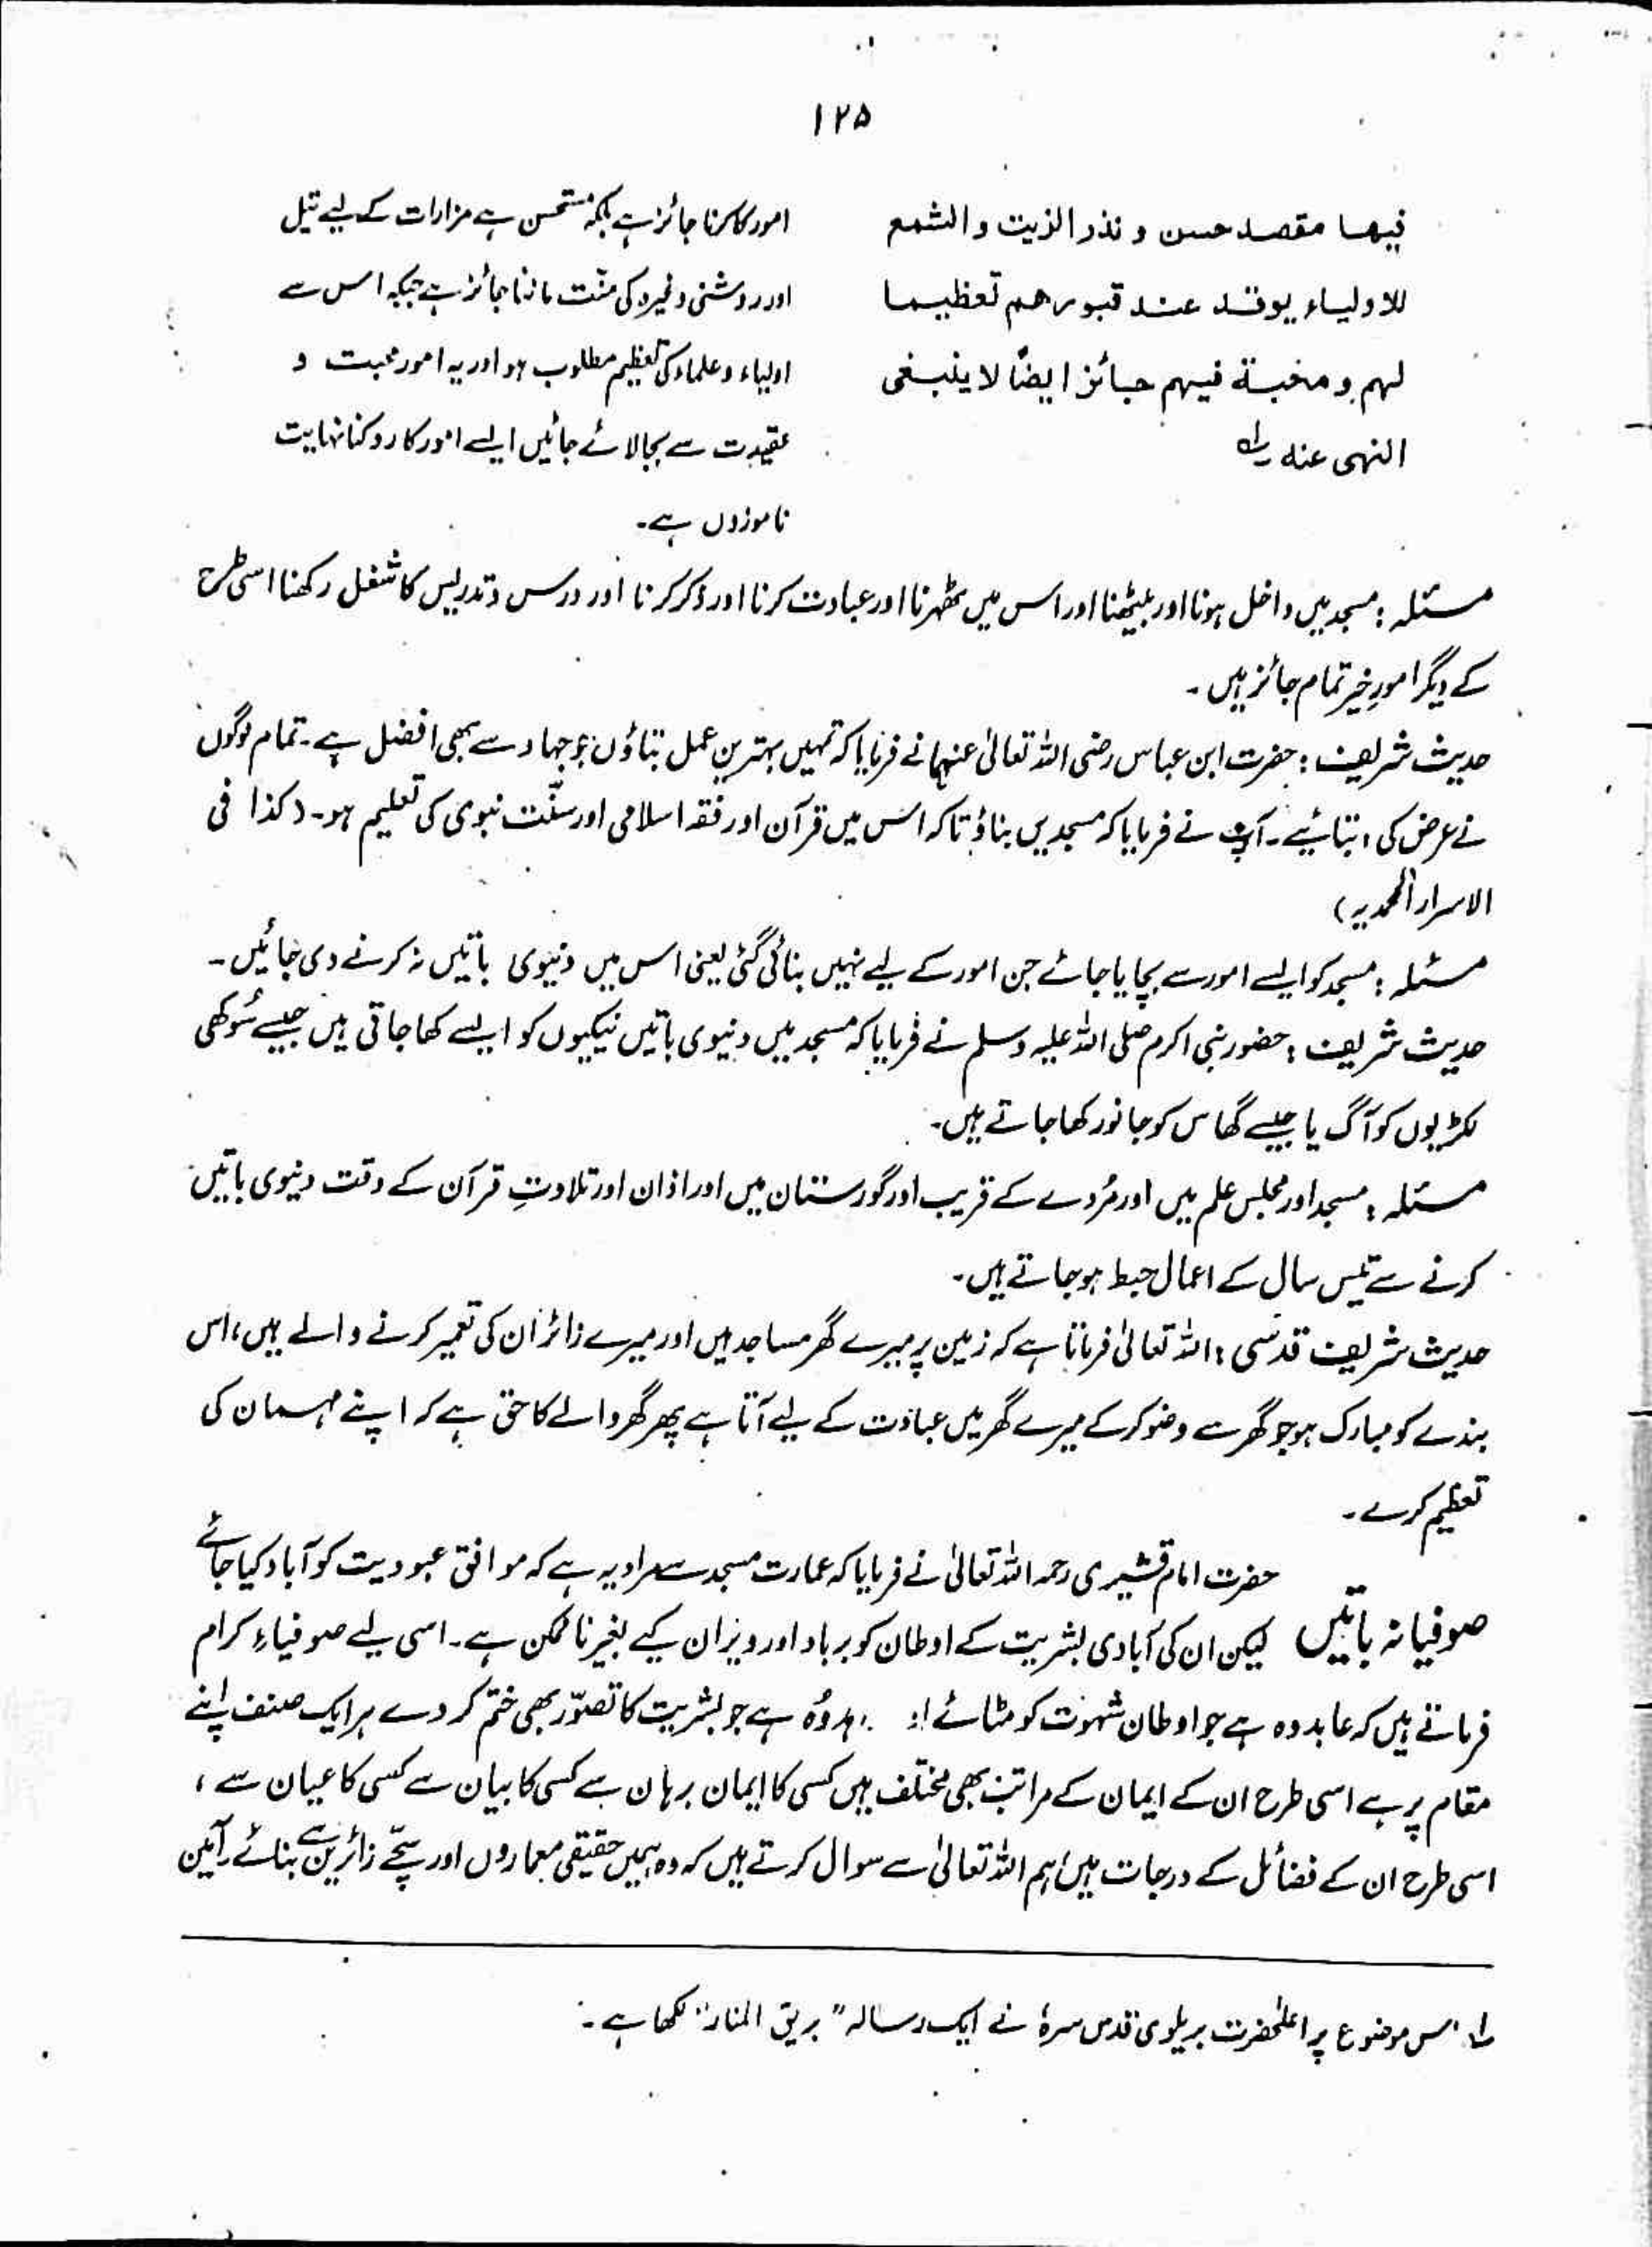 ۱۲۵
فیها مقصد حسن و نذر الزیت و الشمع
للاولیاء یوقد عند قبورهم تعظیما
لهم و محبة فیهم جائز ایضًا لا ینبغی
النهی عنه ۱؎
امور کا کرنا جائز ہے بلکہ مستحسن ہے مزارات کے لیے تیل
اور روشنی وغیرہ کی منّت ماننا جائز ہے جبکہ اس سے
اولیاء و علماء کی تعظیم مطلوب ہو اور یہ امور محبت و
عقیدت سے بجا لائے جائیں ایسے امور کا روکنا نہایت
ناموزوں ہے۔
مسئلہ : مسجد میں داخل ہونا اور بیٹھنا اور اس میں ٹھہرنا اور عبادت کرنا اور ذکر کرنا اور درس و تدریس کا شغل رکھنا اسی طرح
کے دیگر امورِ خیر تمام جائز ہیں۔
حدیث شریف : حضرت ابن عباس رضی اللہ تعالیٰ عنہما نے فرمایا کہ تمہیں بہترین عمل بتاؤں جو جہاد سے بھی افضل ہے۔ تمام لوگوں
نے عرض کی، بتائیے۔ آپ نے فرمایا کہ مسجدیں بناؤ تاکہ اس میں قرآن اور فقہ اسلامی اور سنّت نبوی کی تعلیم ہو۔ (کذا فی
الاسرار المحمدیہ)
مسئلہ : مسجد کو ایسے امور سے بچایا جائے جن امور کے لیے نہیں بنائی گئی یعنی اس میں دنیوی باتیں نہ کرنے دی جائیں۔
حدیث شریف : حضور نبی اکرم صلی اللہ علیہ وسلم نے فرمایا کہ مسجد میں دنیوی باتیں نیکیوں کو ایسے کھا جاتی ہیں جیسے سُوکھی
لکڑیوں کو آگ یا جیسے گھاس کو جانور کھا جاتے ہیں۔
مسئلہ : مسجد اور مجلس علم میں اور مُردے کے قریب اور گورستان میں اور اذان اور تلاوتِ قرآن کے وقت دنیوی باتیں
کرنے سے تیس سال کے اعمال حبط ہو جاتے ہیں۔
حدیث شریف قدسی : اللہ تعالیٰ فرماتا ہے کہ زمین پر میرے گھر مساجد ہیں اور میرے زائر ان کی تعمیر کرنے والے ہیں، اس
بندے کو مبارک ہو جو گھر سے وضو کرکے میرے گھر میں عبادت کے لیے آتا ہے پھر گھر والے کا حق ہے کہ اپنے مہمان کی
تعظیم کرے۔
حضرت امام قشیری رحمہ اللہ تعالیٰ نے فرمایا کہ عمارت مسجد سے مراد یہ ہے کہ مواقق عبودیت کو آباد کیا جائے
صوفیانہ باتیں لیکن ان کی آبادی بشریت کے اوطان کو برباد اور ویران کیے بغیر ناممکن ہے۔ اسی لیے صوفیاءِ کرام
فرماتے ہیں کہ عابد وہ ہے جو اوطان شہوت کو مٹائے وُہ ہے جو بشریت کا تصوّر بھی ختم کر دے ہر ایک صنف اپنے
مقام پر ہے اسی طرح ان کے ایمان کے مراتب بھی مختلف ہیں کسی کا ایمان برہان سے کسی کا بیان سے کسی کا عیان سے،
اسی طرح ان کے فضائل کے درجات ہیں، ہم اللہ تعالیٰ سے سوال کرتے ہیں کہ وہ ہمیں حقیقی معماروں اور سچّے زائرین سے بنائے (آمین
۱؎ اس موضوع پر اعلیٰحضرت بریلوی قدس سرہٗ نے ایک رسالہ "بریق المنار" لکھا ہے۔